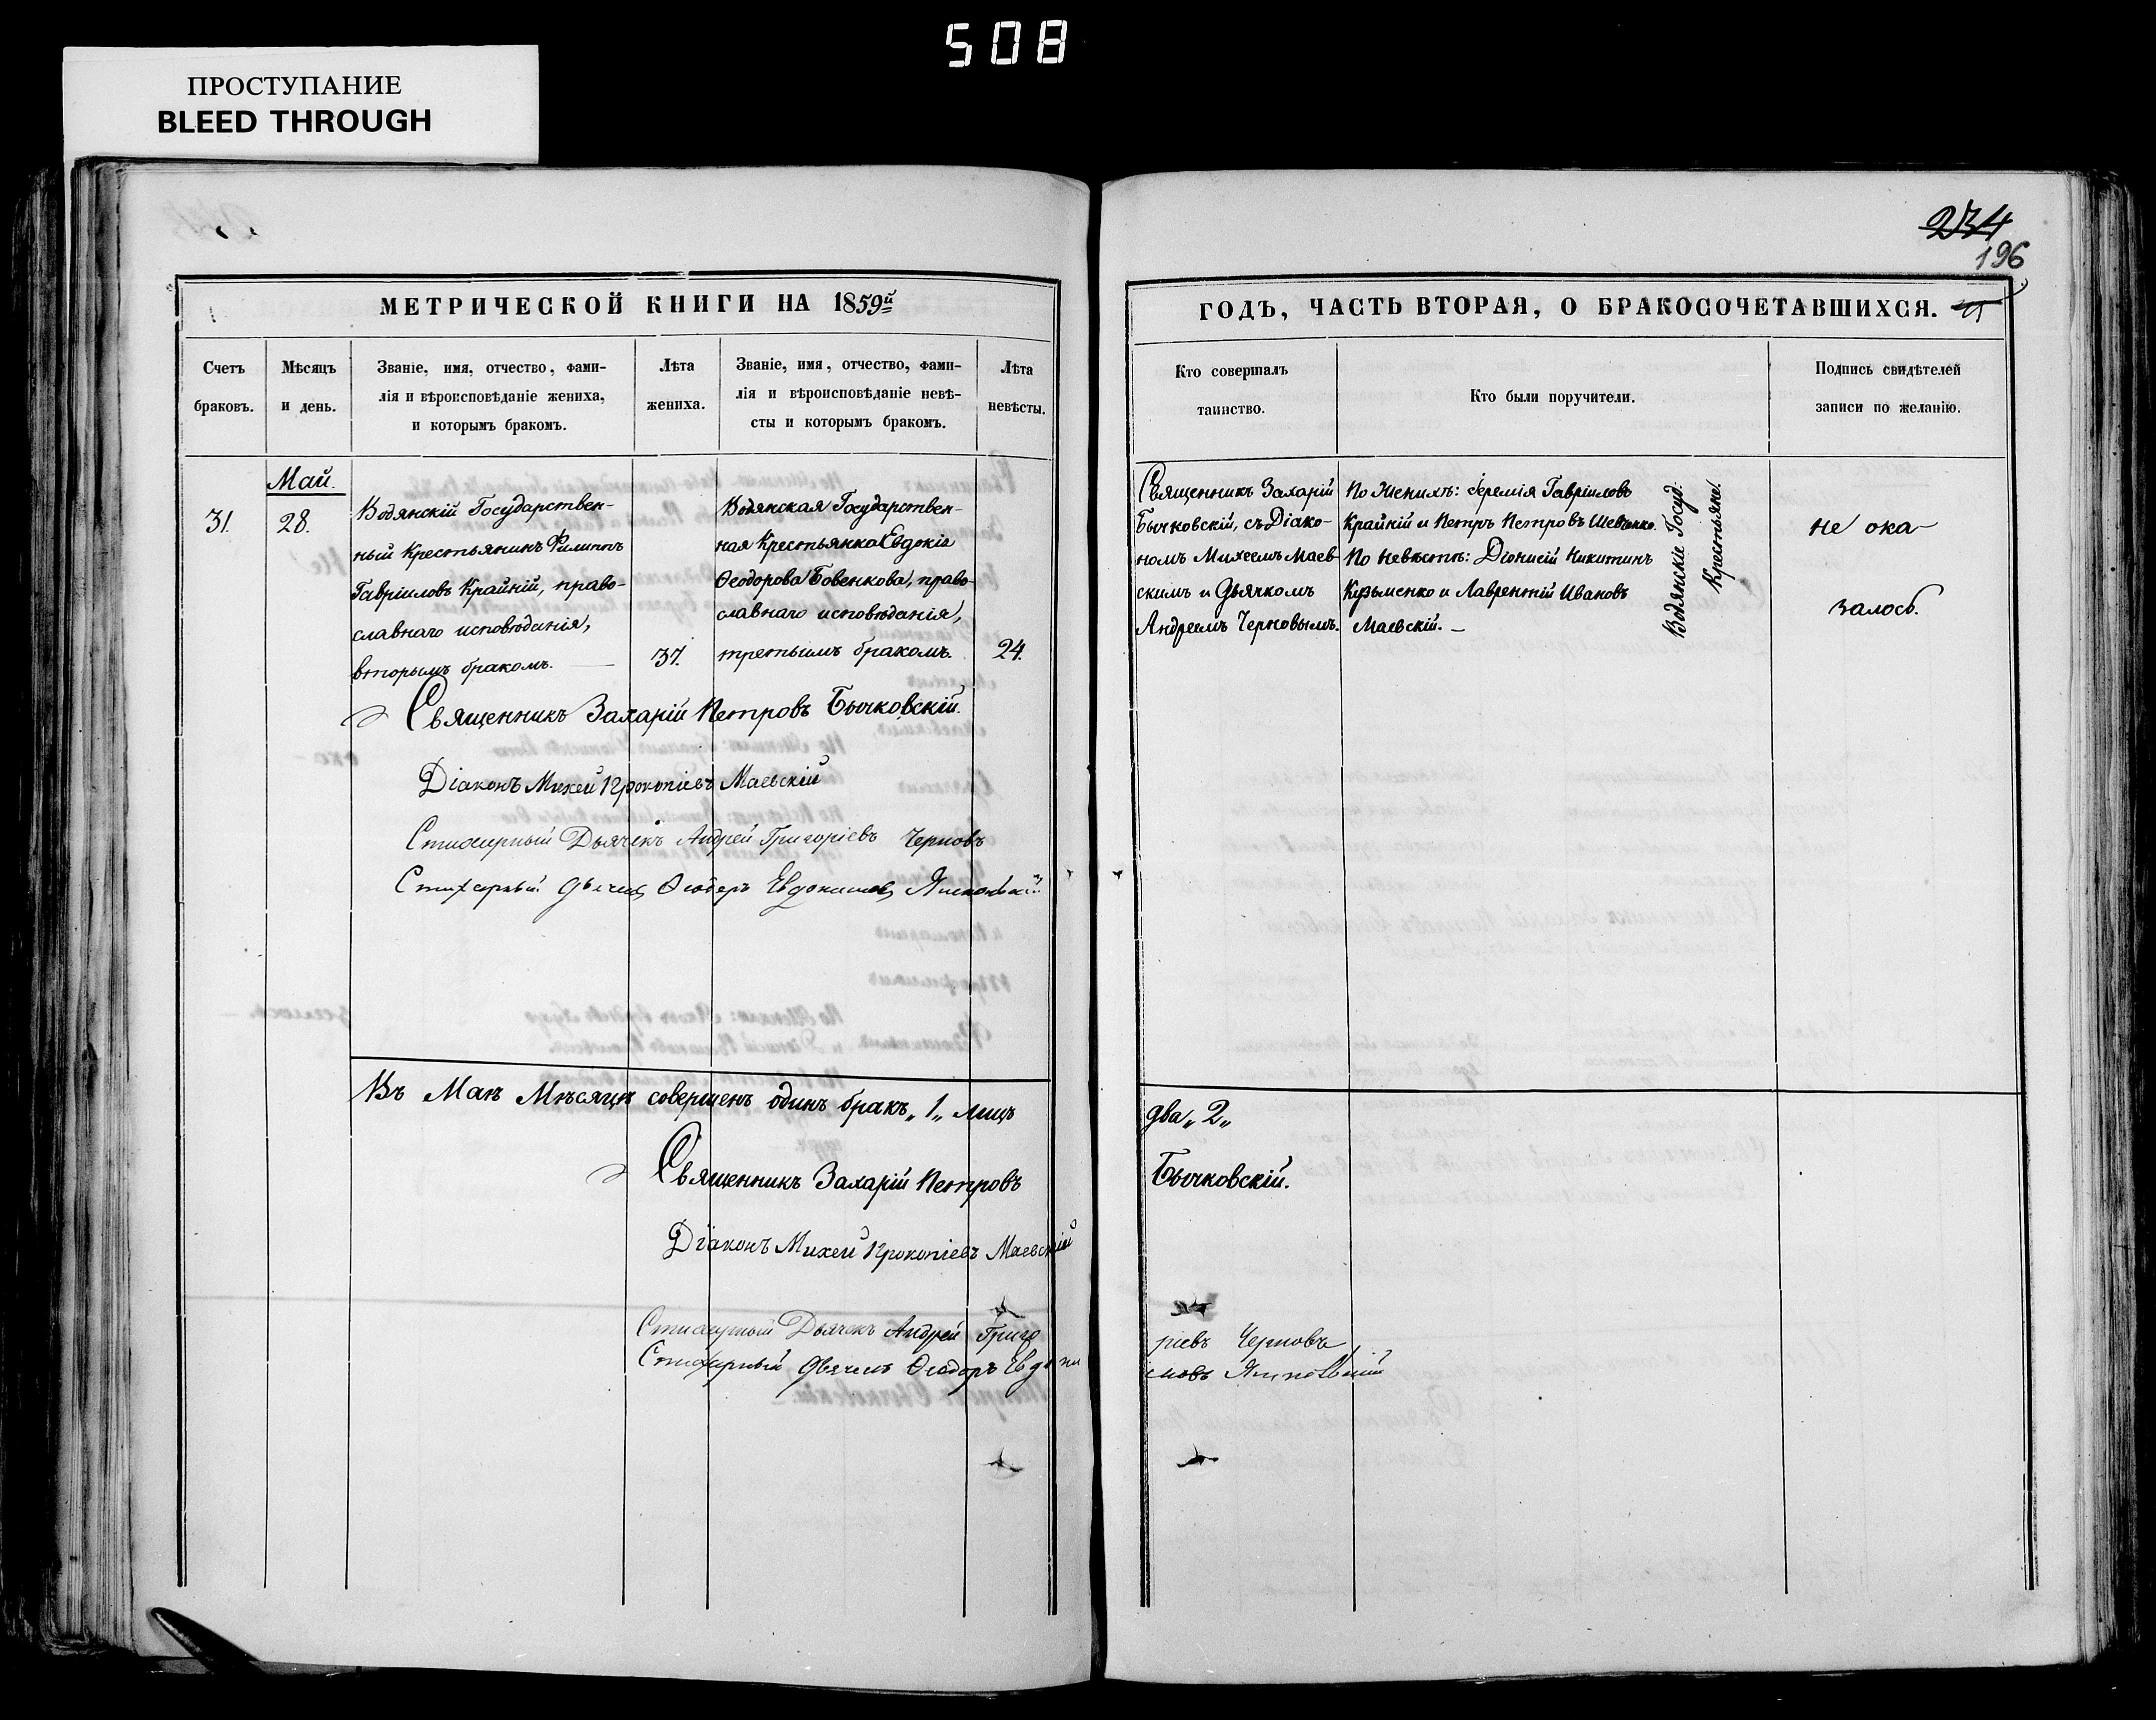 508
ПРОСТУПАНИЕ
BLEED THROUGH
МЕТРИЧЕСКОЙ КНИГИ НА 1859й
Счетъ
браковъ.
Мѣсяцъ
и день.
Званіе, имя, отчество, фами-
лія и вѣроисповѣданіе жениха,
и которымъ бракомъ.
Лѣта
жениха.
Званіе, имя, отчество, фами-
лія и вѣроисповѣданіе невѣ-
сты и которымъ бракомъ.
Лѣта
невѣсты.
31.
Май.
28.
Водянскій Государствен-
ный Крестьянинъ Филиппъ
Гавріиловъ Крайній, право-
славнаго исповѣданія,
вторымъ бракомъ.
37.
Водянская Государствен-
ная Крестьянка Евдокія
Ѳеодорова Бовенкова, право-
славнаго исповѣданія,
третьимъ бракомъ.
24.
Священникъ Захарій Петровъ Бычковскій.
Діаконъ Михей Прокопіевъ Маевскій
Стихарный Дьячекъ Андрей Григоріевъ Черновъ
Стихарный Дьячекъ Ѳеодоръ Евдокимовъ
Въ Маѣ Мѣсяцѣ совершенъ одинъ бракъ „1„ лицъ
Священникъ Захарій Петровъ
Діаконъ Михей Прокопіевъ Маевскій
Стихарный Дьячекъ Андрей Григо
Стихарный Дьячекъ Ѳеодоръ Евдоки
234
196
ГОДЪ, ЧАСТЬ ВТОРАЯ, О БРАКОСОЧЕТАВШИХСЯ.
Кто совершалъ
таинство.
Кто были поручители.
Подпись свидѣтелей
записи по желанію.
Священникъ Захарій
Бычковскій, съ Діако-
номъ Михеемъ Маев-
скимъ и Дьячкомъ
Андреемъ Черновымъ.
По Женихѣ: Іеремія Гавріиловъ
Крайній и Петръ Петровъ Шевченко.
По Невѣстѣ: Діонисій Никитинъ
Кузьменко и Лаврентій Ивановъ
Маевскій.
Водянскіе Госуд:
Крестьяне.
не ока-
залось.
два „2„
Бычковскій.
ріевъ Черновъ
мовъ